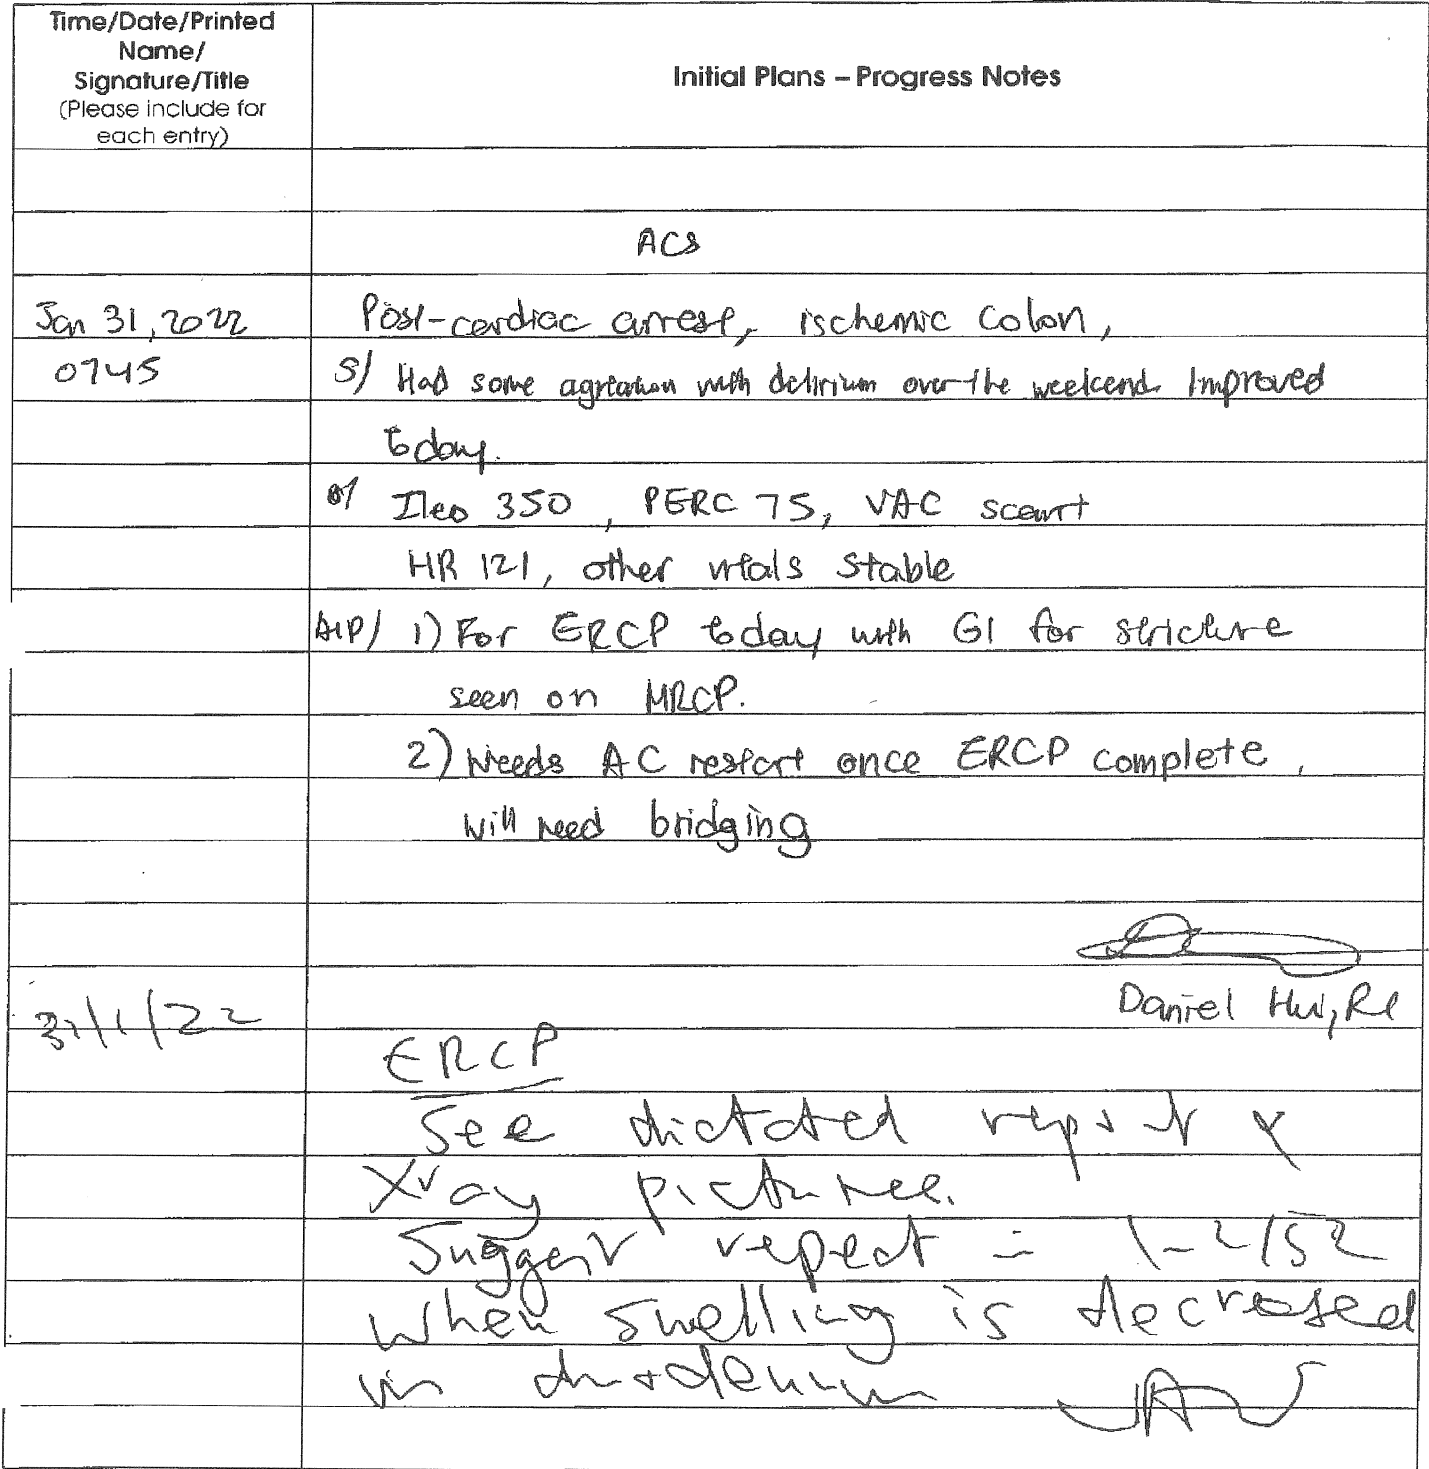 Time/Date/Printed
Name/
Signature/Title
(Please include for
each entry)
Initial Plans – Progress Notes
ACS
Jan 31, 2022
Post-cardiac arrest, ischemic colon,
0745
S/ Had some agitation with delirium over the weekend. Improved
today.
O/ Ileo 350, PERC 75, VAC scant
HR 121, other vitals stable
A/P/ 1) For ERCP today with GI for stricture
seen on MRCP.
2) Needs AC restart once ERCP complete,
will need bridging
Daniel Hui,
31/1/22
ERCP
See dictated report &
Xray pictures.
Suggest repeat
when swelling is decreased
in duodenum